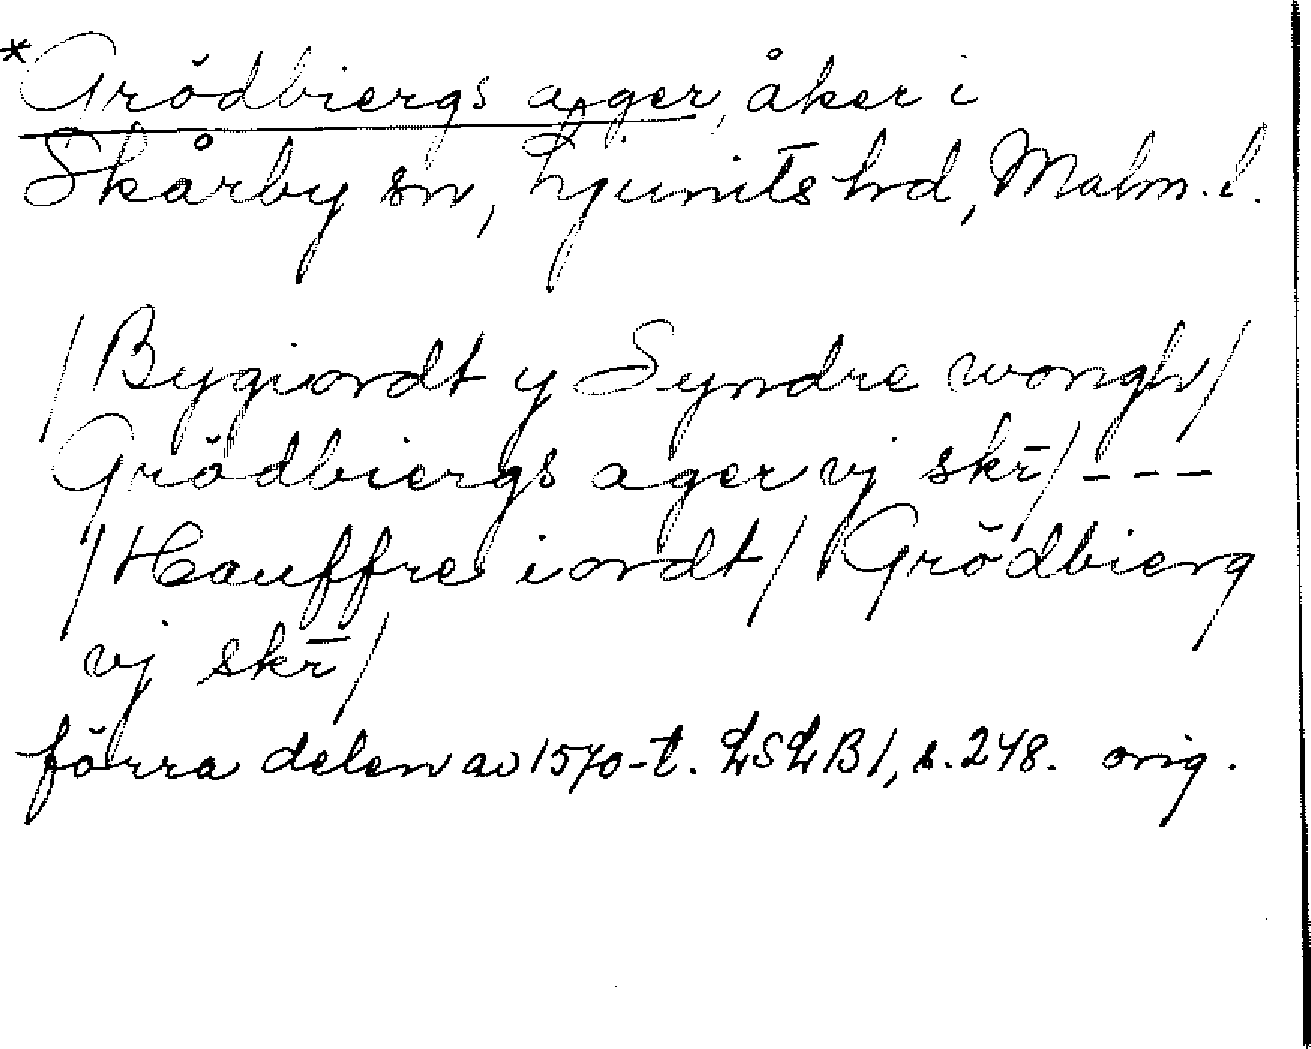 *Grödbiergs ager, åker i
Skårby sn, Ljunits hd, Malm. l.
/Bygiordt y Syndre wongh/
Grödbiergs ager vj skr̄/ - - -
/Hauffre iordt/ Grödbierg
vj skr̄/
förra delen av 1570-t. LSLB 1, s. 248. orig.